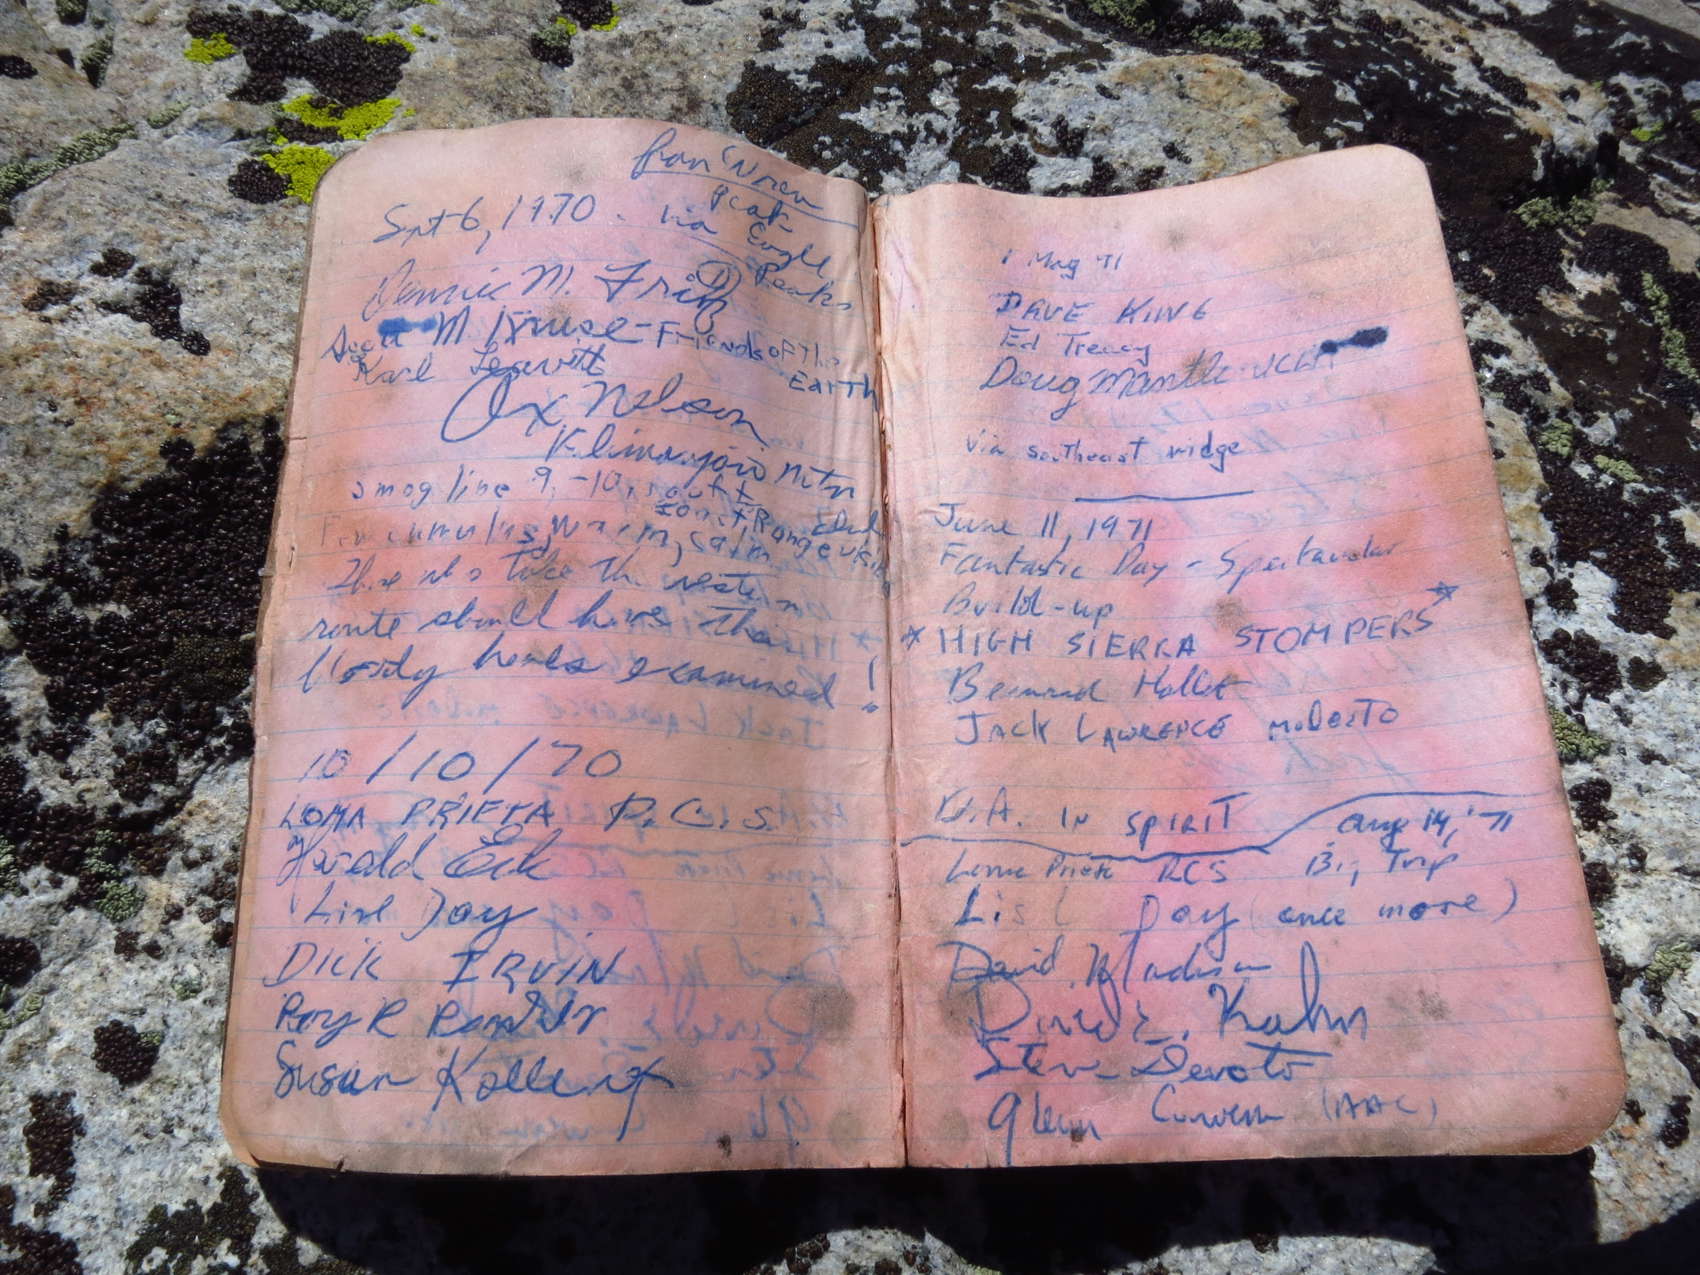 Sept 6, 1970.
from Noren
Peak
via Eagle
Peaks
Dennis M. Fritz
Scott M Kruse - Friends of the
Earth
Karl Leavitt
Ox Nelson
Mtn
smog line 9,-10, out t
coast Range
Few cumulus, warm, calm
Those who take the western
route should have their
bloody heads examined!
10/10/70
LOMA PRIETA R.C.S.
Harold Eck
Dick IRVIN
Roy R
Susan
1 May 71
DAVE KING
Ed Treacy
Doug Mantle - UCLA
via southeast ridge
June 11, 1971
Fantastic Day - Spectacular
Build-up
* HIGH SIERRA STOMPERS *
Bernard Hallet
JACK LAWRENCE MODESTO
IN SPIRIT
aug 14, '71
Loma Prieta RCS Big Trip
Day (once more)
David
David E. Kahn
Steve Devoto
Glenn